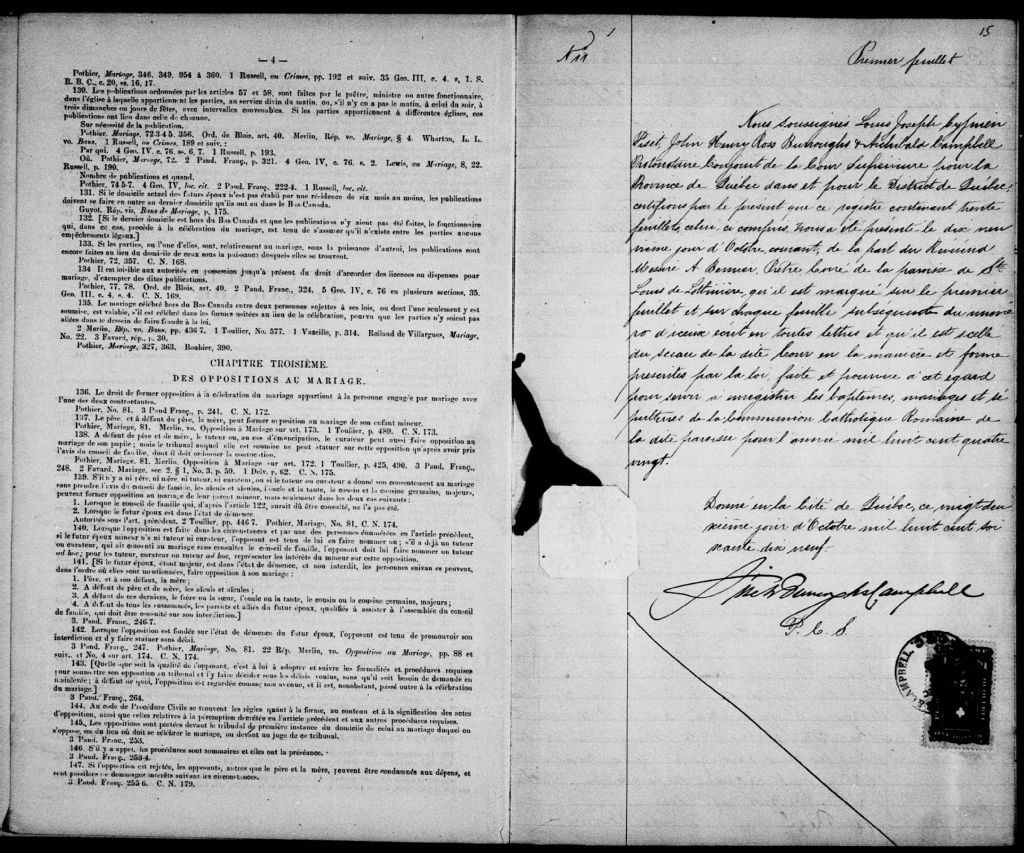 — 4 —
Pothier, Mariage, 346, 349, 954 à 360. 1 Russell, on Crimes, pp. 192 et suiv. 35 Geo. III, c. 4. s, 1. S.
R. B. C., c. 20, ss. 16, 17.
130. Les publications ordonnées par les articles 57 et 58, sont faites par le prêtre, ministre ou autre fonctionnaire,
dans l'église à laquelle appartiennent les parties, au service divin du matin, ou, s'il n'y en a pas le matin, à celui du soir, à
trois dimanches ou jours de fêtes, avec intervalles convenables. Si les parties appartiennent à différentes églises, ces
publications ont lieu dans celle de chacune.
Sur nécessité de la publication.
Pothier, Mariage, 72-3-4-5, 356. Ord. de Blois, art. 40. Merlin, Rép. vo. Mariage, § 4. Wharton, L. L.
vo. Bans, 1 Russell, on Crimes, 189 et suiv. :
Par qui. 4 Geo. IV, c. 76, ss. 6, 7. 1 Russell, p. 193.
Où. Pothier, Mariage, 72. 2 Pand. Franç., p. 321. 4 Geo. IV, c. 76, s. 2. Lewis, on Mariage, 8, 22.
Russell, p. 190.
Nombre de publications et quand.
Pothier, 74 5-7. 4 Geo. IV, loc. cit. 2 Pand. Franç. 222-4. 1 Russell, loc. cit.
131. Si le domicile actuel des futurs époux n'est pas établi par une résidence de six mois au moins, les publications
doivent se faire en outre au dernier domicile qu'ils ont eu dans le Bas-Canada.
Guyot. Rép. vis, Bans de Mariage, p. 175.
132. [Si le dernier domicile est hors du Bas-Canada et que les publications n'y aient pas été faites, le fonctionnaire
qui, dans ce cas, procède à la célébration du mariage, est tenu de s'assurer qu'il n'existe entre les parties aucuns
empêchements légaux.]
133. Si les parties, ou l'une d'elles, sont, relativement au mariage, sous la puissance d'autrui, les publications sont
encore faites au lieu du domicile de ceux sous la puissance desquels elles se trouvent.
Pothier, 72, 357. C. N. 168.
134 Il est loisible aux autorités en possession jusqu'à présent du droit d'accorder des licences ou dispenses pour
mariage, d'exempter des dites publications.
Pothier, 77, 78. Ord. de Blois, art. 40. 2 Pand. Franç., 324. 5 Geo. IV, c. 76 en plusieurs sections, 35.
Geo. III. c. 4. s. 4. C. N. 169.
135. Le mariage célébré hors du Bas-Canada entre deux personnes sujettes à ses lois, ou dont l'une seulement y est
soumise, est valable, s'il est célébré dans les formes usitées au lieu de la célébration, pourvu que les parties n'y soient pas
allées dans le dessein de faire fraude à la loi.
2 Merlin, Rép. vo. Bans, pp. 436 7. 1 Toullier, No. 577. 1 Vazeille, p. 314. Rolland de Villargues, Mariage,
No. 22. 3 Favard, rép., p. 30.
Pothier, Mariage, 327, 363. Bouhier, 390.
CHAPITRE TROISIÈME.
DES OPPOSITIONS AU MARIAGE.
136. Le droit de former opposition à la célébration du mariage appartient à la personne engagée par mariage avec
l'une des deux contractantes.
Pothier, No. 81. 3 Pand Franç., p. 241. C. N. 172.
137. Le père, et à défaut du père, la mère, peut former opposition au mariage de son enfant mineur.
Pothier, Mariage, 81. Merlin, vo. Opposition à Mariage sur art. 173. 1 Toullier, p. 489. C. N. 173.
138. A défaut de père et de mère, le tuteur ou, au cas d'émancipation, le curateur peut aussi faire opposition au
mariage de son pupile ; mais le tribunal auquel elle est soumise ne peut statuer sur cette opposition qu'après avoir pris
l'avis du conseil de famille, dont il doit ordonner la convocation.
Pothier, Mariage, 81. Merlin, Opposition à Mariage sur art. 172. 1 Toullier, p. 425, 490. 3 Pand. Franç.,
248. 2 Favard. Mariage, sec. 2, § 1, No. 3, p. 59. 1 Delv. p. 62. C. N. 175.
139. S'il n'y a ni père, ni mère, ni tuteur, ni curateur, ou si le tuteur ou curateur a donné son consentement au mariage
sans prendre l'avis du conseil de famille, les aïeuls et aïeules, l'oncle et la tante, le cousin et la cousine germains, majeurs,
peuvent former opposition au mariage de leur parent mineur, mais seulement dans les deux cas suivants :
1. Lorsque le conseil de famille qui, d'après l'article 122, aurait dû être consulté, ne l'a pas été.
2. Lorsque le futur époux est dans l'état de démence.
Autorisés sous l'art. précédent. 2 Toullier, pp. 446 7. Pothier, Mariage, No. 81, C. N. 174.
140. Lorsque l'opposition est faite dans les circonstances et par une des personnes énumérées en l'article précédent,
si le futur époux mineur n'a ni tuteur ni curateur, l'opposant est tenu de lui en faire nommer un ; s'il a déjà un tuteur
ou curateur, qui ait consenti au mariage sans consulter le conseil de famille, l'opposant doit lui faire nommer un tuteur
ad hoc ; pour les tuteur, curateur ou tuteur ad hoc, représenter les intérêts du mineur sur cette opposition.
141. [Si le futur époux, étant majeur, est dans l'état de démence, et non interdit, les personnes suivantes peuvent,
dans l'ordre où elles sont mentionnées, faire opposition à son mariage :
1. Père, et à son défaut, la mère ;
2. A défaut de père et de mère, les aïeuls et aïeules ;
3. A défaut de ces derniers, le frère ou la sœur, l'oncle ou la tante, le cousin ou la cousine germains, majeurs ;
4. A défaut de tous les susnommés, les parents et alliés du futur époux, qualifiés à assister à l'assemblée du conseil
de famille, qui doit être consulté sur son interdiction.]
3. Pand. Franç., 246-7.
142. Lorsque l'opposition est fondée sur l'état de démence du futur époux, l'opposant est tenu de promouvoir son
interdiction et d'y faire statuer sans délai.
3 Pand. Franç., 247. Pothier, Mariage, No. 81. 22 Rép. Merlin, vo. Opposition au Mariage, pp. 88 et
suiv., et No. 4 sur art. 174. C. N. 174.
143. [Quelle que soit la qualité de l'opposant, c'est à lui à adopter et suivre les formalités et procédures requises
pour soumettre son opposition au tribunal et l'y faire décider sous les délais voulus, sans qu'il soit besoin de demande en
mainlevée ; à défaut de quoi, l'opposition est regardée comme non avenue, et il est, nonobstant, passé outre à la célébration
du mariage.]
3 Pand. Franç., 264.
144. Au code de Procédure Civile se trouvent les règles quant à la forme, au contenu et à la signification des actes
d'opposition, ainsi que celles relatives à la péremption décrétée en l'article précédent et aux autres procédures requises.
145. Les oppositions sont portées devant le tribunal de première instance du domicile de celui au mariage duquel on
s'oppose, ou du lieu où doit se célébrer le mariage, ou devant un juge de ce tribunal.
3 Pand. Franç., 253.
146. S'il y a appel, les procédures sont sommaires et elles ont la préséance.
3 Pand. Franç., 253-4.
147. Si l'opposition est rejetée, les opposants, autres que le père et la mère, peuvent être condamnés aux dépens, et
sont passibles de dommages intérêts suivant les circonstances.
3 Pand. Franç. 255 6. C. N. 179.
15
Premier feuillet
Nous soussignés Louis Joseph Cyprien
Fiset, John Henry Ross Burroughs & Archibald Campbell
Protonotaire Conjoint de la Cour Supérieure pour la
Province de Québec dans et pour le District de Québec,
certifions par le présent que ce registre contenant trente
feuillets, celui ci compris, nous a été présenté le dix neu
vième jour d'Octobre courant, de la part du Révérend
Messire A Bernier, Prêtre Curé de la paroisse de St
Louis de Lotbinière, qu'il est marqué sur le premier
feuillet et sur chaque feuille subséquente du numé
ro d'iceux écrit en toutes lettres et qu'il est scellé
du sceau de la dite Cour en la manière et forme
prescrites par la loi, faite et pourvue à cet égard
pour servir à enregistrer les baptêmes, mariages et sé
pultures de la communion Catholique Romaine de
la dite paroisse pour l'année mil huit cent quatre
vingt.
Donné en la Cité de Québec, ce vingt deu
xième jour d'Octobre mil huit cent soi
xante dix neuf.
Fiset Burroughs Campbell
P. C. S.
CAMPBELL